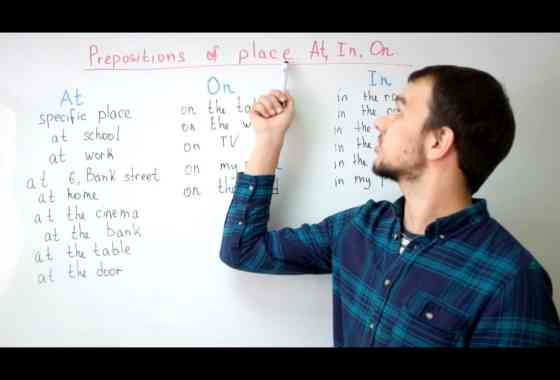 Prepositions of place At, In, On.
At
specific place
at school
at work
at 6, Bank street
at home
at the cinema
at the bank
at the table
at the door
On
on the
on the
on TV
on my
on the
In
in the
in the
in the
in the
in the
in my